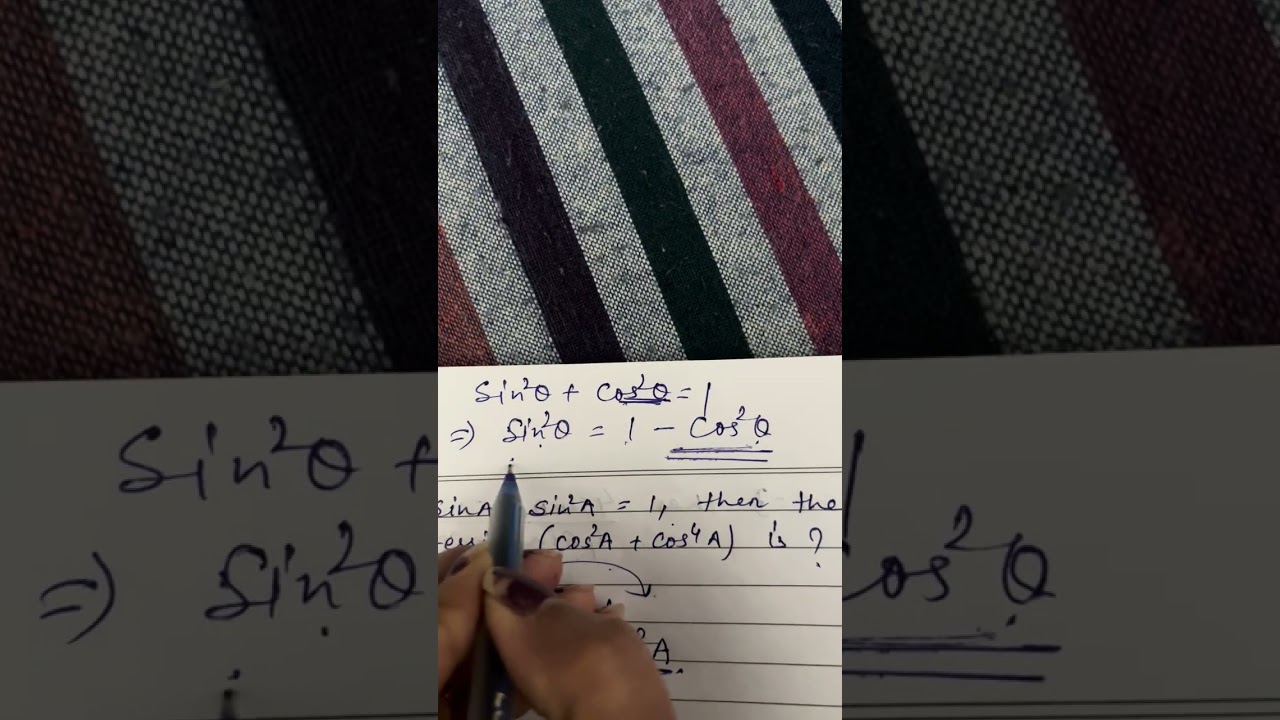 Sin²θ + Cos²θ = 1
⇒ Sin²θ = 1 - Cos²θ
sinA sin²A = 1, then the
(cos²A + cos⁴A) is ?
²A